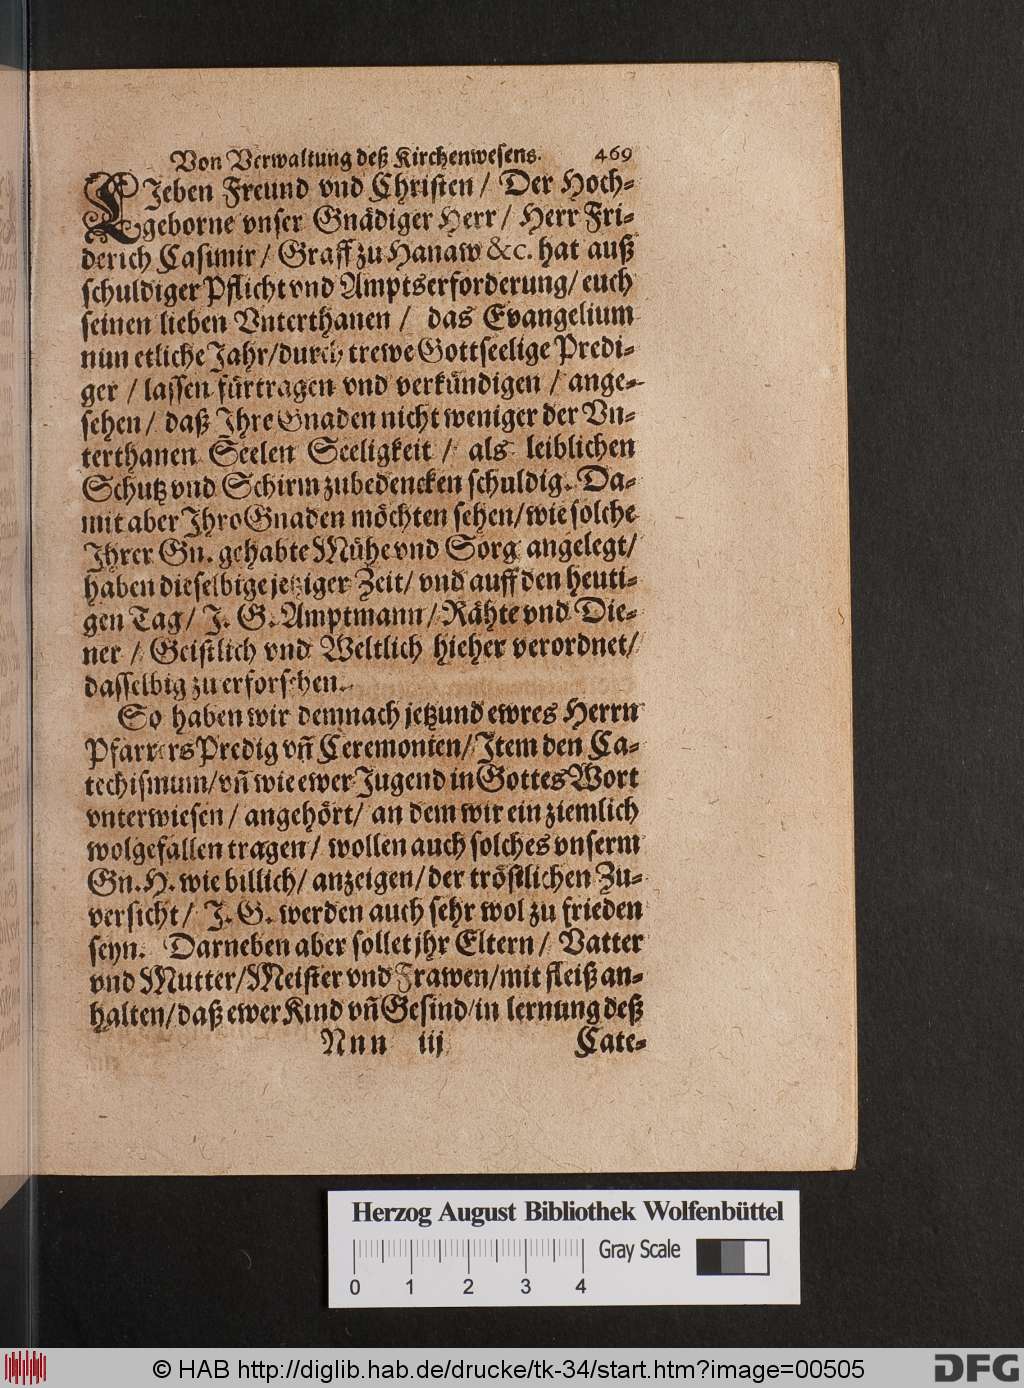 Von Verwaltung deß Kirchenwesens. 469
LJeben Freund vnd Christen / Der Hoch-
geborne vnser Gnädiger Herr / Herr Fri-
derich Casimir / Graff zu Hanaw &c. hat auß
schuldiger Pflicht vnd Amptserforderung / euch
seinen lieben Vnterthanen / das Evangelium
nun etliche Jahr / durch trewe Gottseelige Predi-
ger / lassen fürtragen vnd verkündigen / ange-
sehen / daß Ihre Gnaden nicht weniger der Vn-
terthanen Seelen Seeligkeit / als leiblichen
Schutz vnd Schirm zubedencken schuldig. Da-
mit aber Ihro Gnaden möchten sehen / wie solche
Ihrer Gn. gehabte Mühe vnd Sorg angelegt /
haben dieselbige jetziger Zeit / vnd auff den heuti-
gen Tag / J. G. Amptmann / Rähte vnd Die-
ner / Geistlich vnd Weltlich hieher verordnet /
dasselbig zu erforschen.
So haben wir demnach jetzund ewres Herrn
Pfarrers Predig vñ Ceremonien / Item den Ca-
techismum / vñ wie ewer Jugend in Gottes Wort
vnterwiesen / angehört / an dem wir ein ziemlich
wolgefallen tragen / wollen auch solches vnserm
Gn. H. wie billich / anzeigen / der tröstlichen Zu-
versicht / J. G. werden auch sehr wol zu frieden
seyn. Darneben aber sollet jhr Eltern / Vatter
vnd Mutter / Meister vnd Frawen / mit fleiß an-
halten / daß ewer Kind vñ Gesind / in lernung deß
Nnn iij Cate-
Herzog August Bibliothek Wolfenbüttel
Gray Scale
0 1 2 3 4
© HAB http://diglib.hab.de/drucke/tk-34/start.htm?image=00505
DFG